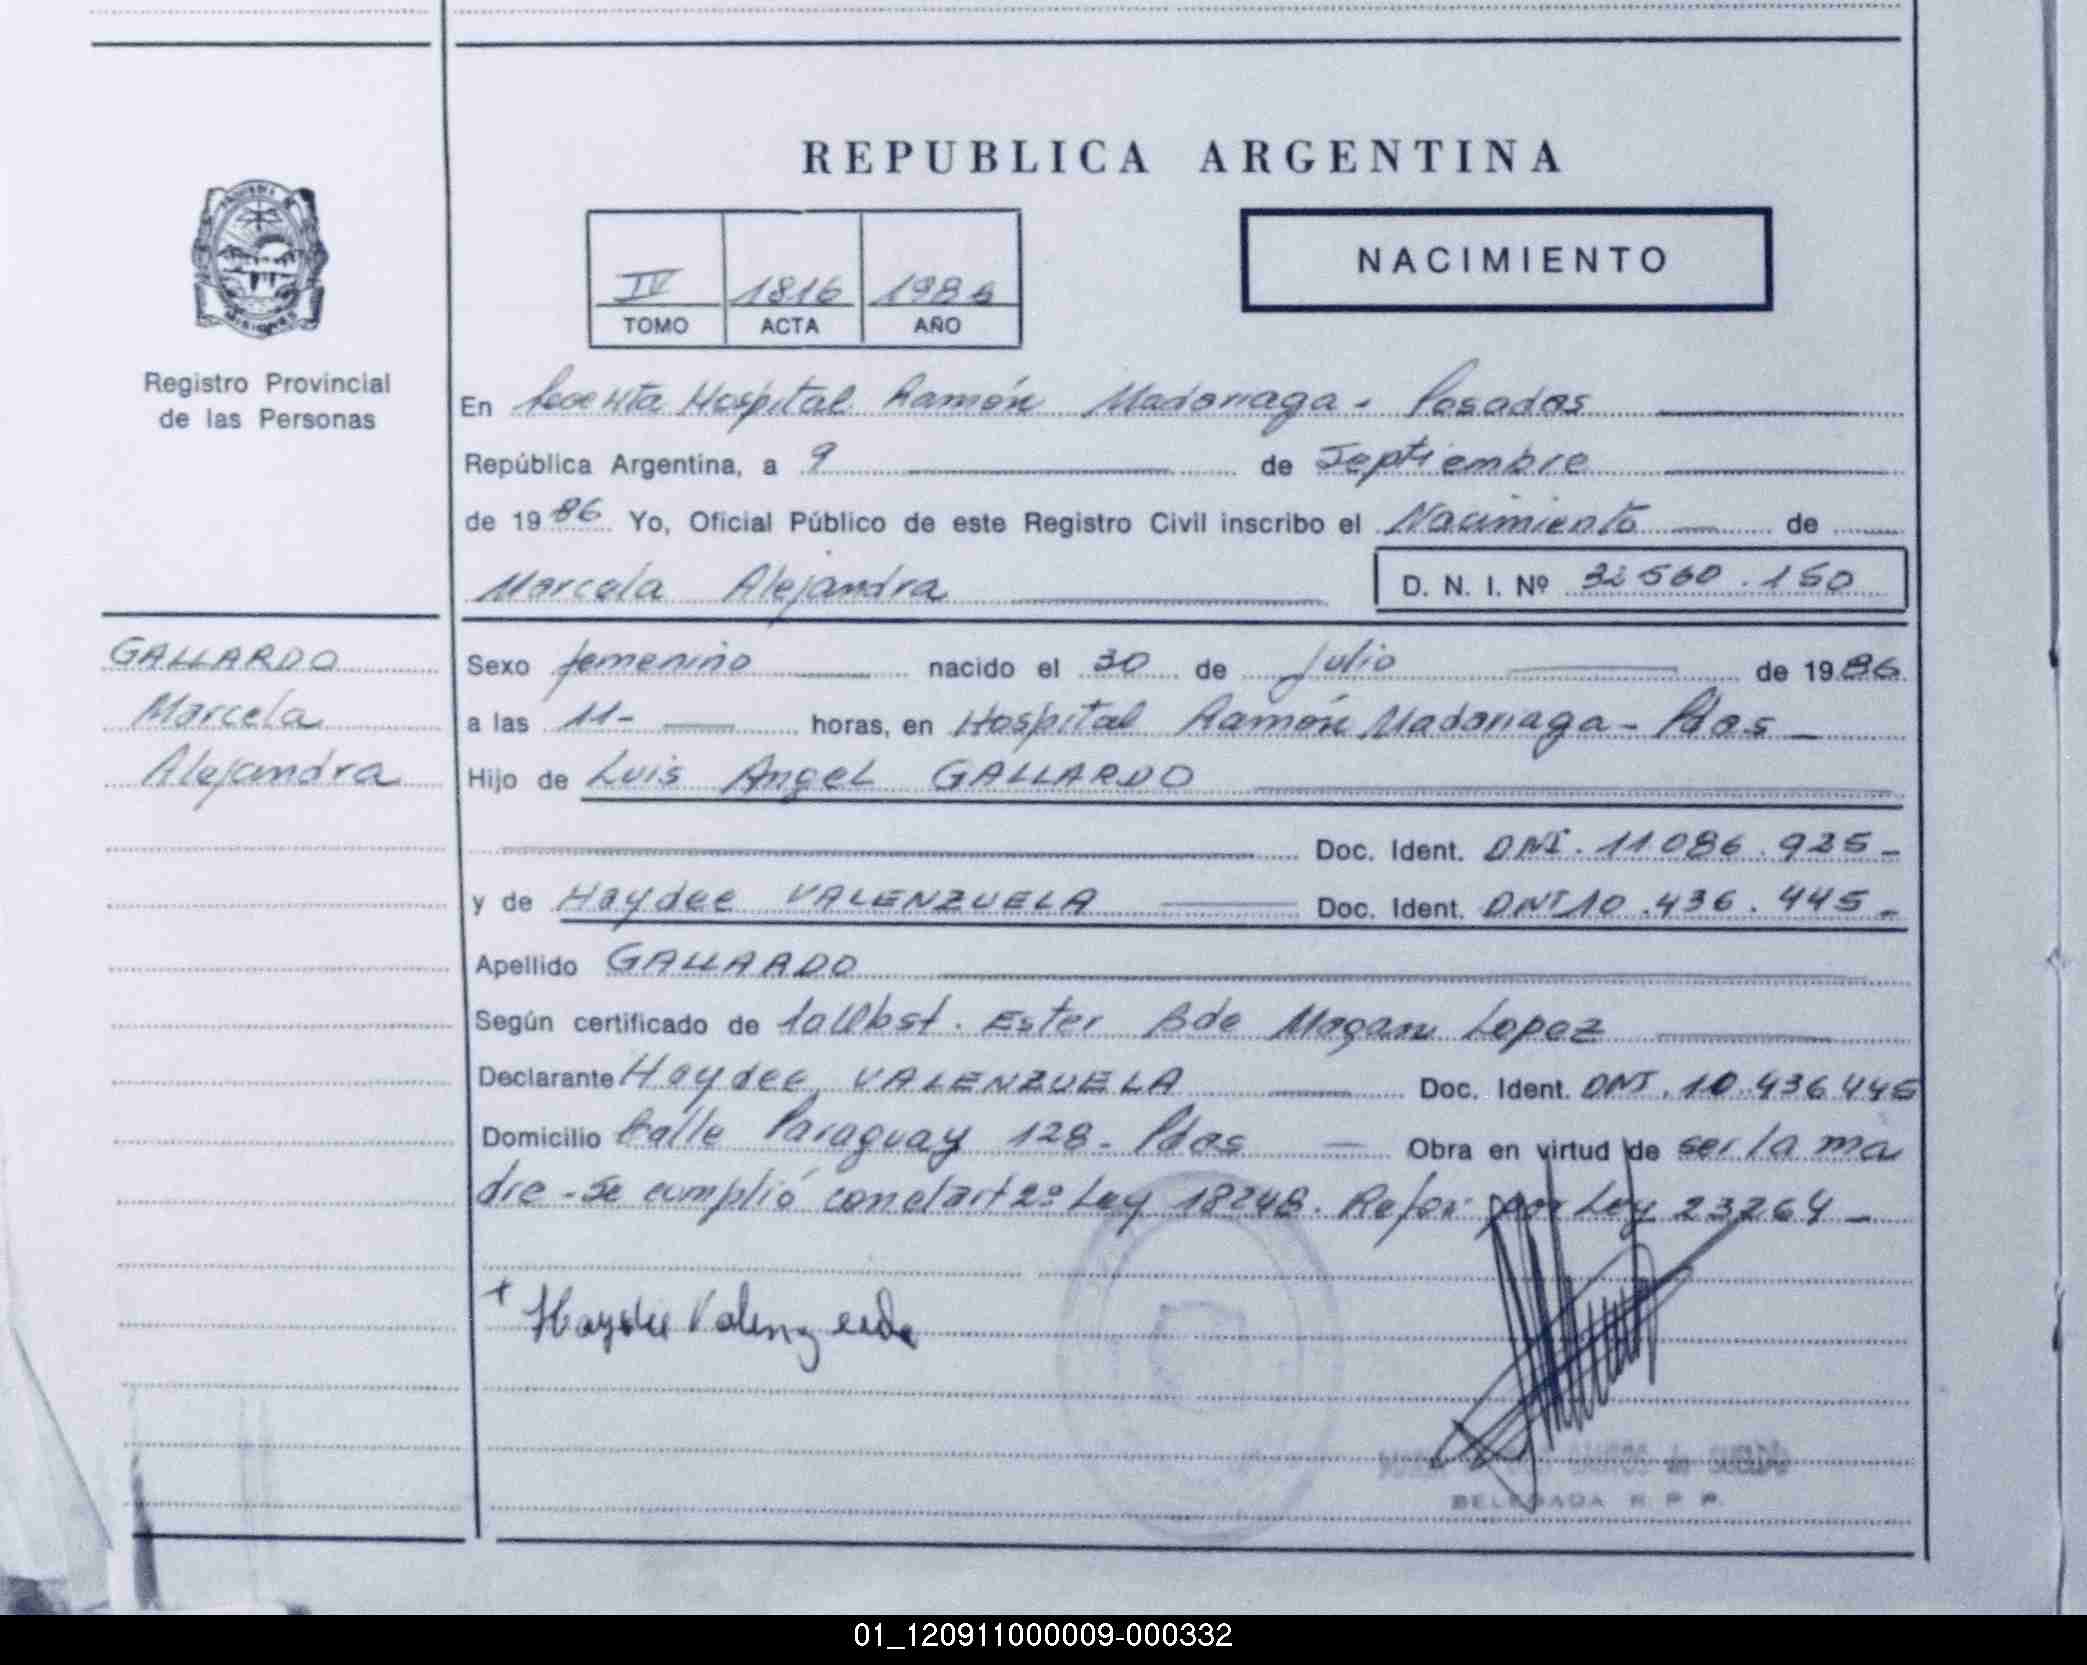 REPUBLICA ARGENTINA
IV 1816 1986
TOMO ACTA AÑO
NACIMIENTO
Registro Provincial
de las Personas
En Hospital Ramón Madariaga - Posadas
República Argentina, a 9 de Septiembre
de 1986 Yo, Oficial Público de este Registro Civil inscribo el Nacimiento de
Marcela Alejandra D. N. I. Nº 32560.150
GALLARDO
Marcela
Alejandra
Sexo femenino nacido el 30 de Julio de 1986
a las 11- horas, en Hospital Ramón Madariaga - Pdas -
Hijo de Luis Angel GALLARDO
Doc. Ident. DNI. 11086.925-
y de Haydee VALENZUELA Doc. Ident. DNI 10.436.445-
Apellido GALLARDO
Según certificado de Ester B de Lopez
Declarante Haydee VALENZUELA Doc. Ident. DNI. 10.436445
Domicilio Calle Paraguay 128- Pdas Obra en virtud de ser la ma
dre - Se cumplió con el art 2º Ley 18248. Refor por Ley 23264 -
+ Haydee Valenzuela
DELEGADA R. P. P.
01_120911000009-000332